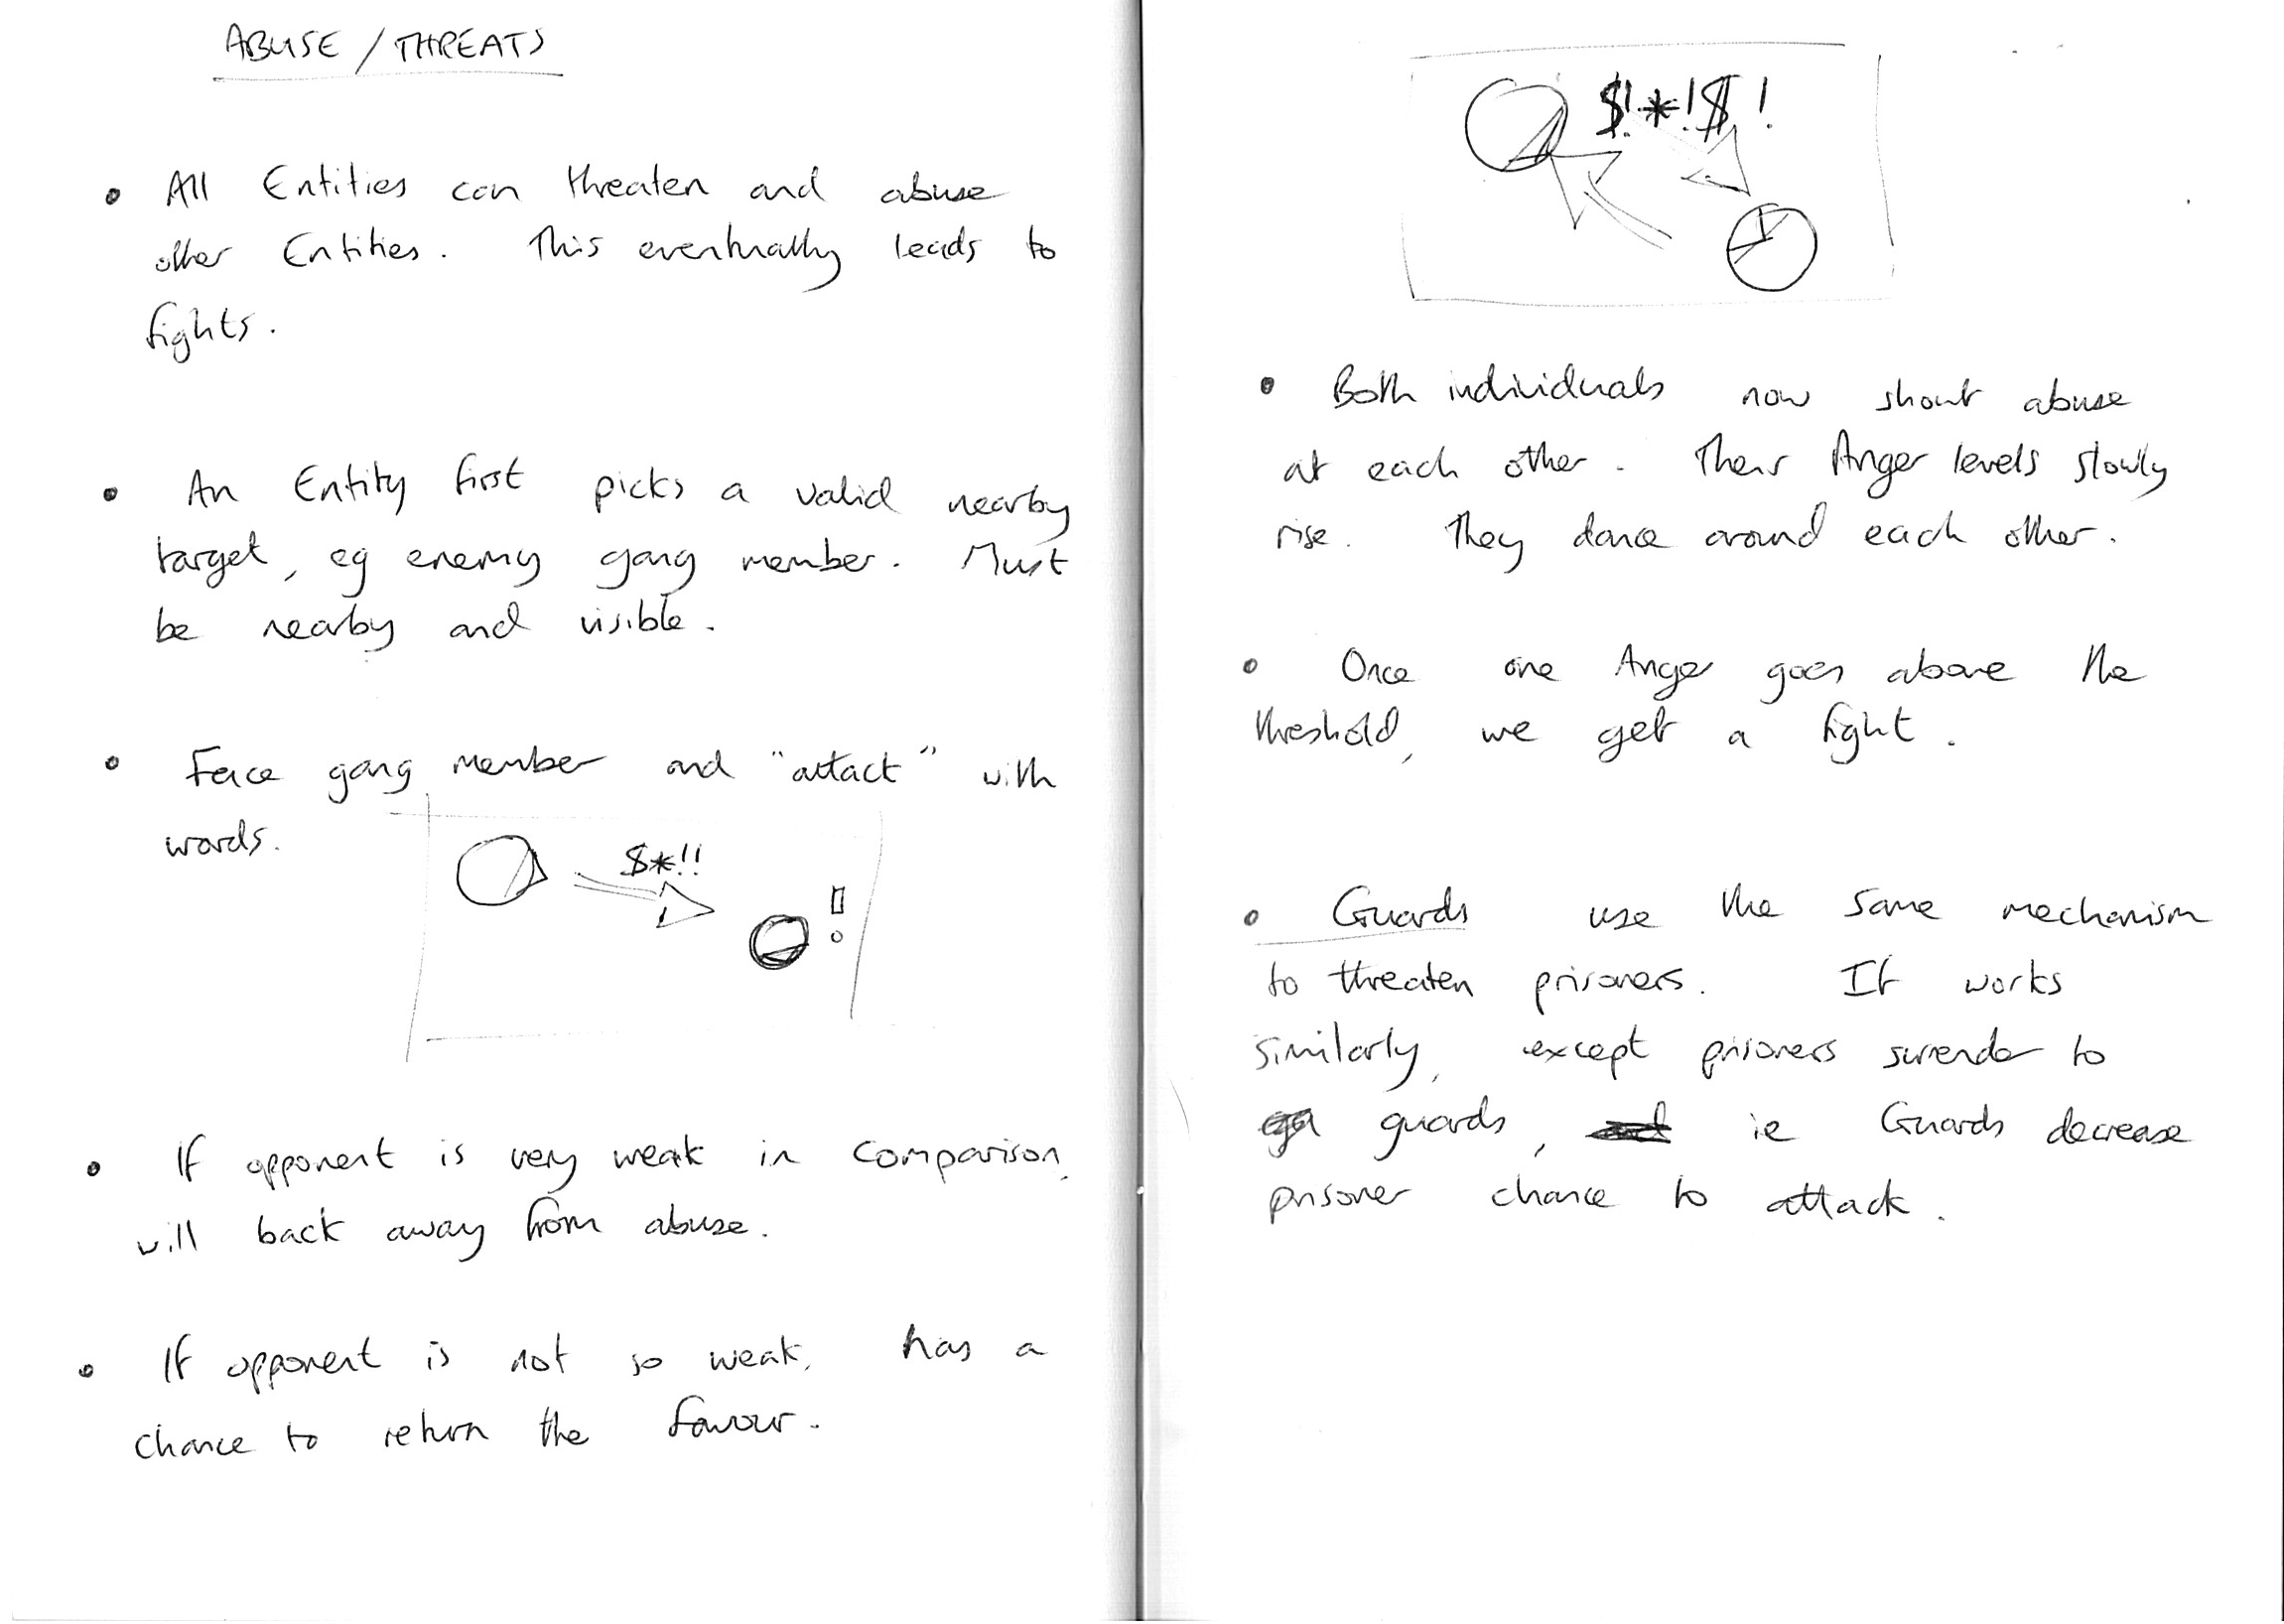 ABUSE / THREATS
• All Entities can threaten and abuse
other Entities. This eventually leads to
fights.
• An Entity first picks a valid nearby
target, eg enemy gang member. Must
be nearby and visible.
• Face gang member and "attact" with
words.
$*!!
!
• If opponent is very weak in comparison,
will back away from abuse.
• If opponent is not so weak, has a
chance to return the favour.
$!*!$!
• Both individuals now shout abuse
at each other. Their Anger levels slowly
rise. They dance around each other.
• Once one Anger goes above the
threshold, we get a fight.
• Guards use the same mechanism
to threaten prisoners. It works
similarly, except prisoners surrender to
guards, ie Guards decrease
prisoner chance to attack.